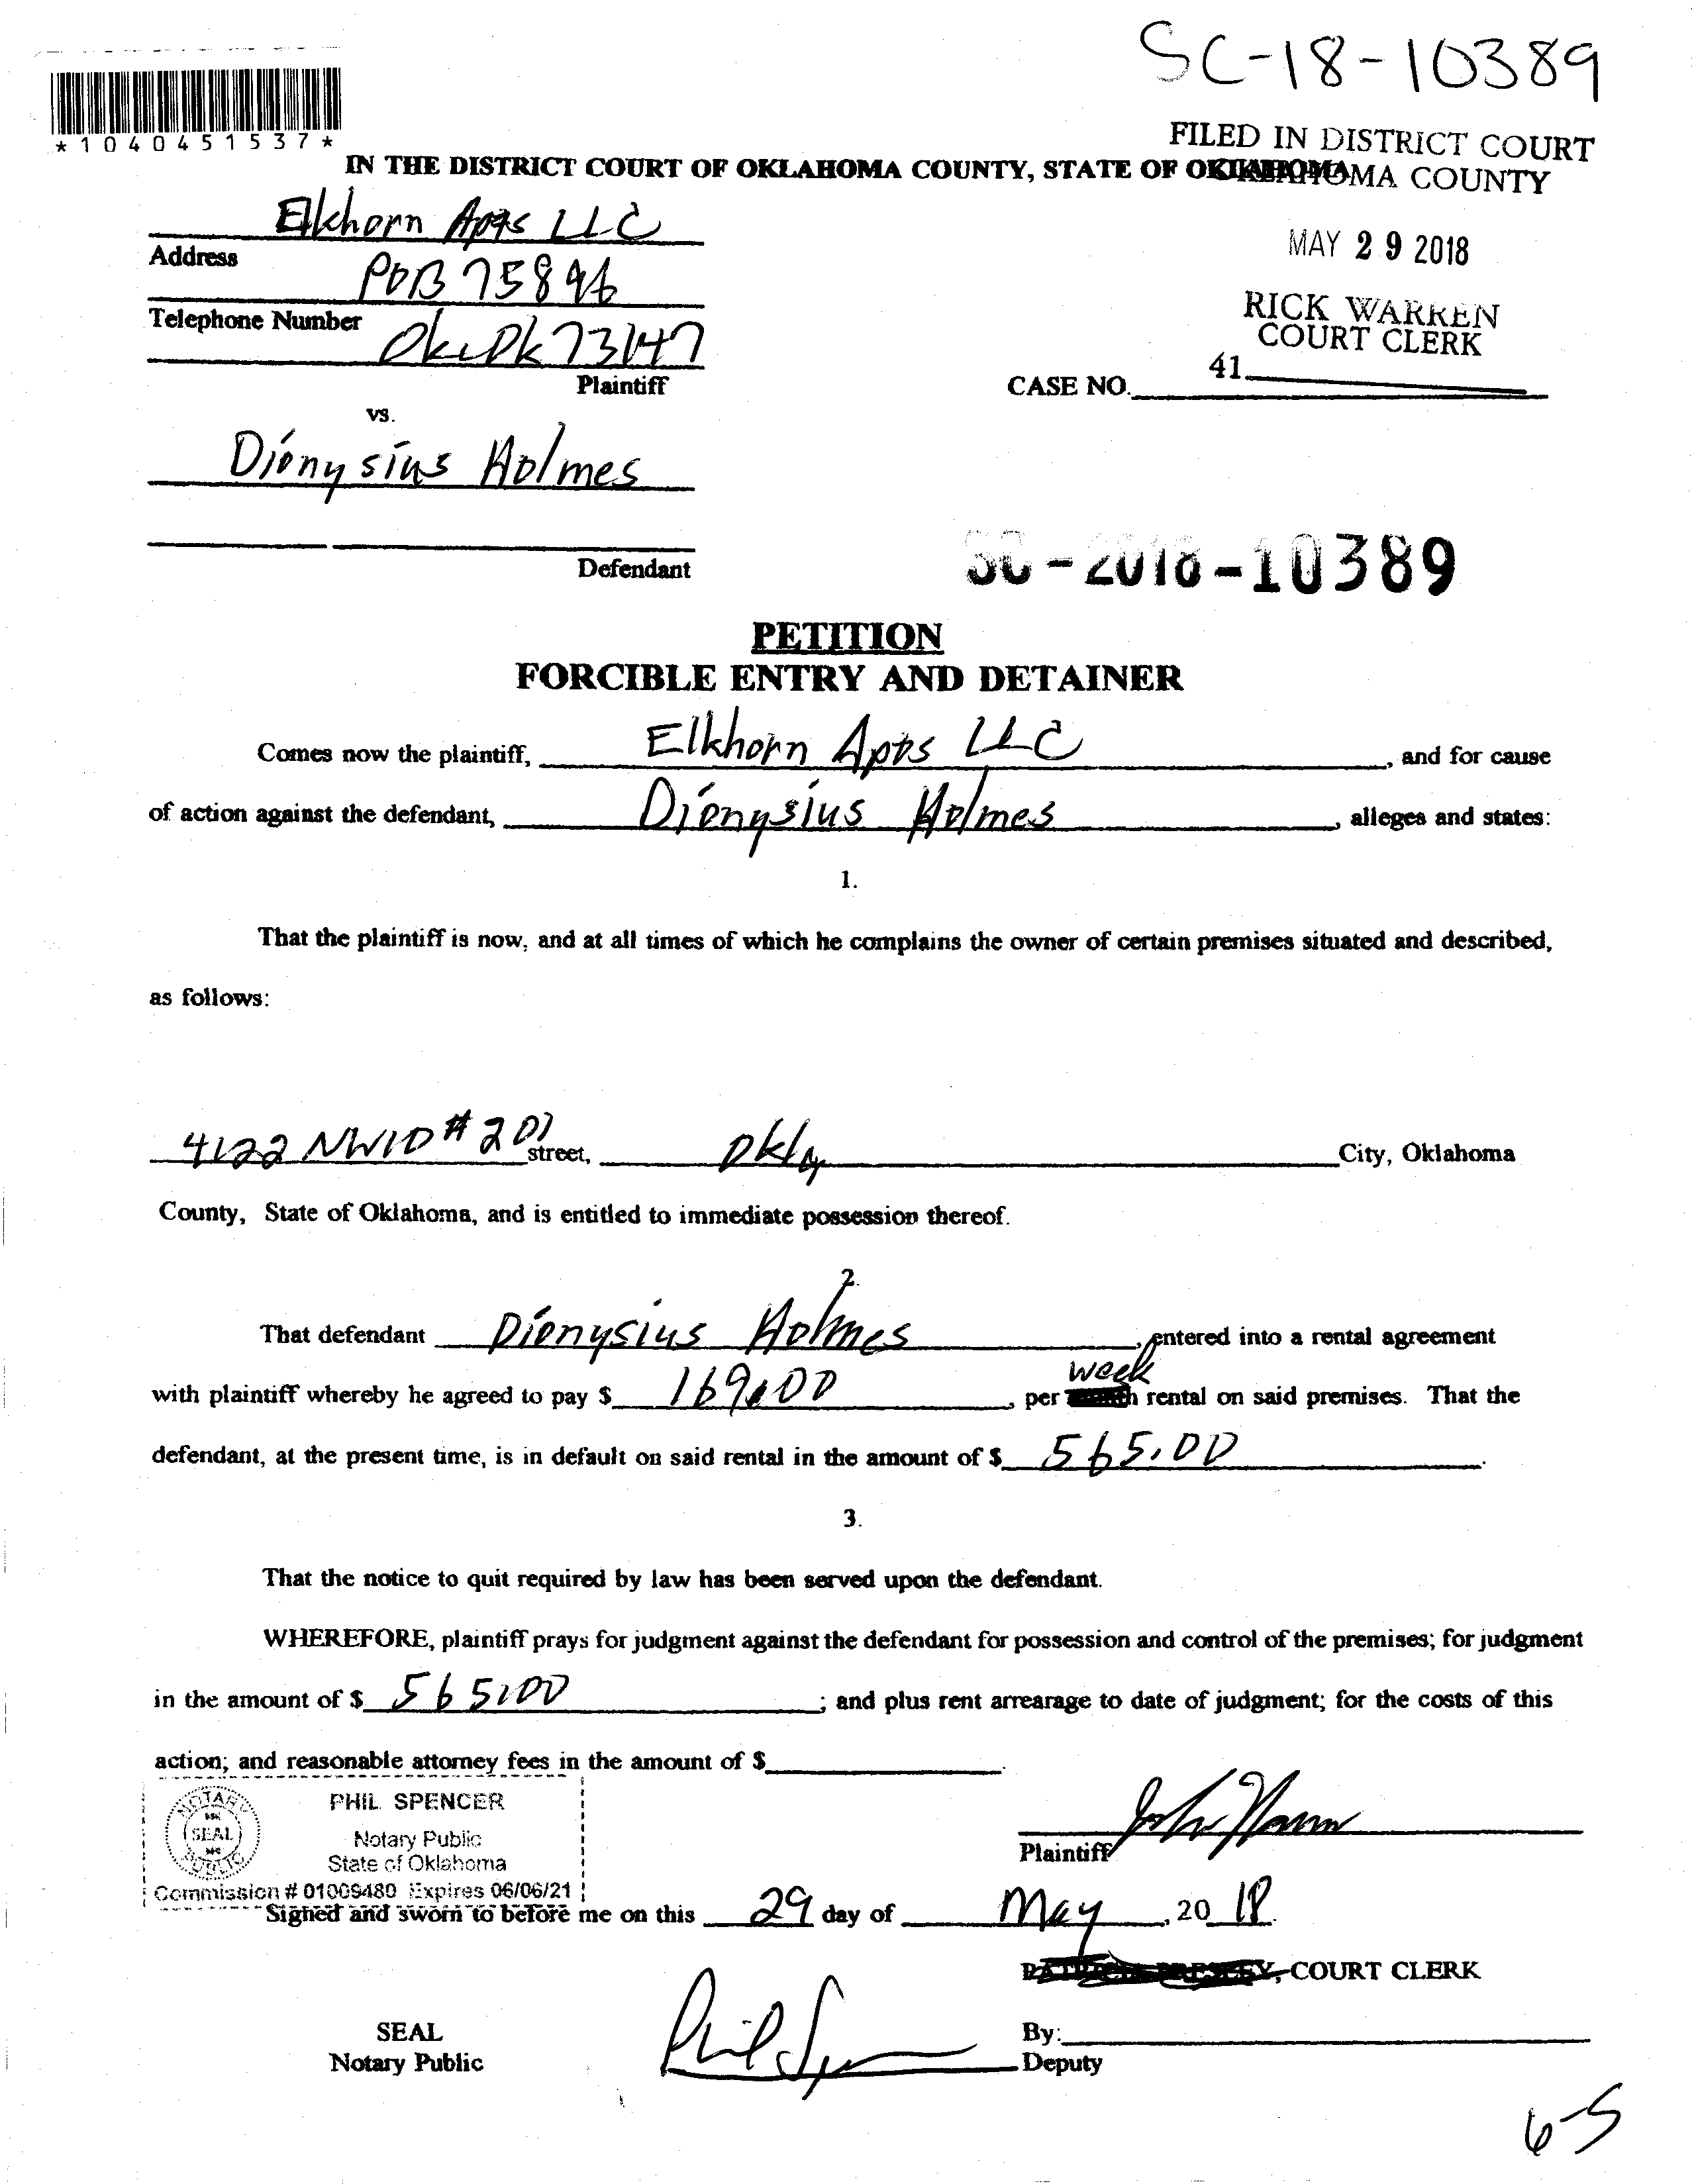 SC-18-10389
*1040451537*
FILED IN DISTRICT COURT
OKLAHOMA COUNTY
IN THE DISTRICT COURT OF OKLAHOMA COUNTY, STATE OF OKLAHOMA
Elkhorn Apts LLC
MAY 29 2018
Address
POB 75896
RICK WARREN
COURT CLERK
Telephone Number
Okc Ok 73147
41
Plaintiff
CASE NO.
vs.
Dionysius Holmes
Defendant
SC-2018-10389
PETITION
FORCIBLE ENTRY AND DETAINER
Comes now the plaintiff, Elkhorn Apts LLC, and for cause
of action against the defendant, Dionysius Holmes, alleges and states:
1.
That the plaintiff is now, and at all times of which he complains the owner of certain premises situated and described,
as follows:
4122 NW10 #201 street, Okla City, Oklahoma
County, State of Oklahoma, and is entitled to immediate possession thereof.
2.
That defendant Dionysius Holmes, entered into a rental agreement
week
with plaintiff whereby he agreed to pay $ 169.00, per month rental on said premises. That the
defendant, at the present time, is in default on said rental in the amount of $ 565.00.
3.
That the notice to quit required by law has been served upon the defendant.
WHEREFORE, plaintiff prays for judgment against the defendant for possession and control of the premises; for judgment
in the amount of $ 565.00; and plus rent arrearage to date of judgment; for the costs of this
action; and reasonable attorney fees in the amount of $.
NOTARY PUBLIC
SEAL
PHIL SPENCER
Notary Public
State of Oklahoma
Commission # 01009480 Expires 06/06/21
Plaintiff
Signed and sworn to before me on this 29 day of May, 20 18.
PATRICIA PRESLEY, COURT CLERK
SEAL
Notary Public
Phil Spencer
By:
Deputy
6-5